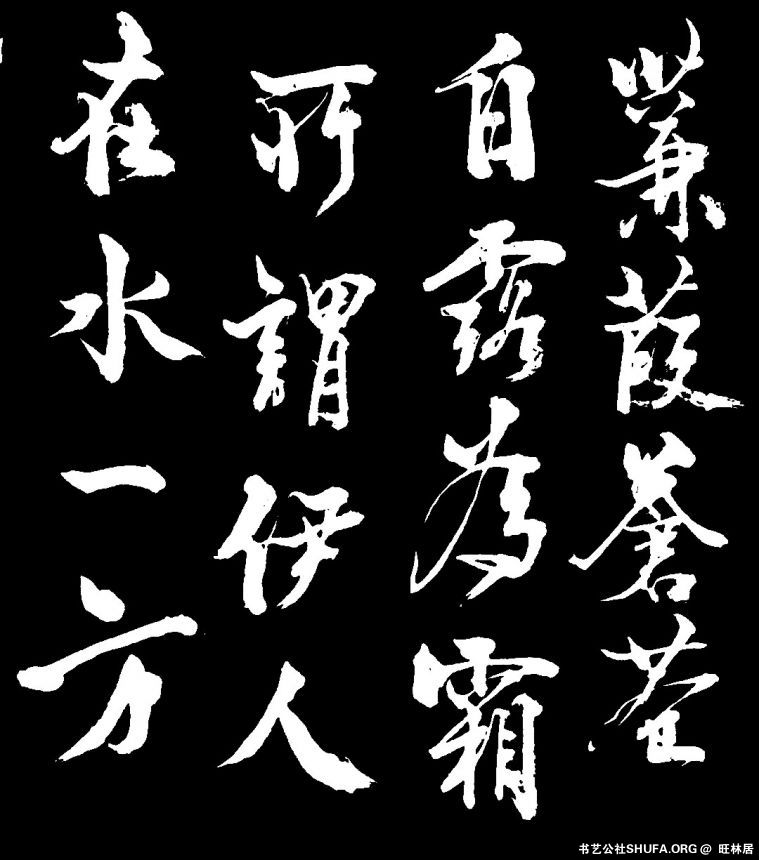 蒹葭蒼蒼
白露為霜
所謂伊人
在水一方
书艺公社SHUFA.ORG @ 旺林居